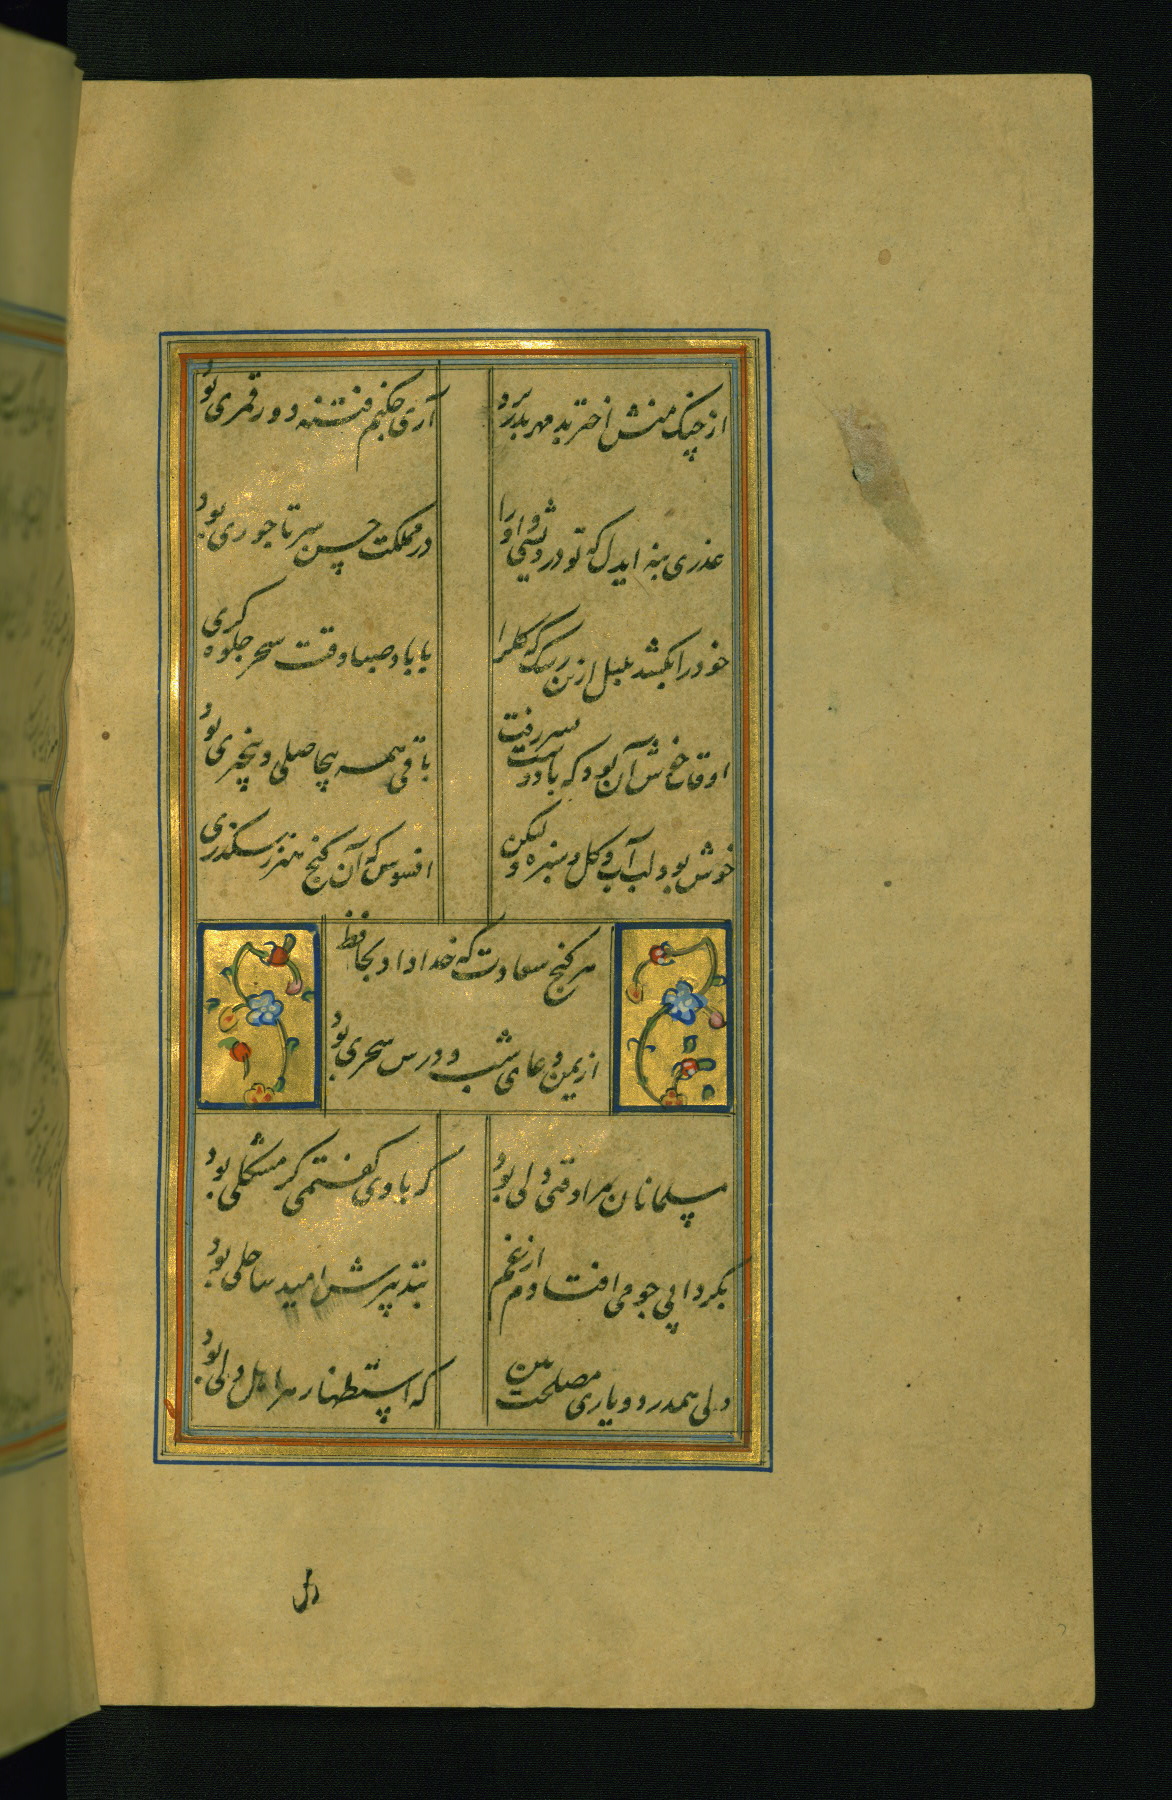 از چنک منش اختر بد مهر بدر برد
آری چکنم فتنه دور قمری بود
عذری بنه ایدل که تو درویشی و او را
در مملکت حسن سر تاجوری بود
خود را بکشد بلبل ازین رشک که کلرا
با باد صبا وقت سحر جلوه کری
اوقات خوش آن بود که با دوست بسر رفت
باقی همه بیحاصلی و بیخبری بود
خوش بود لب آب و کل و سبزه ولیکن
افسوس که آن کنج
هر کنج سعادت که خدا داد بحافظ
از یمن دعای شب و درس سحری بود
مسلمانان مرا وقتی دلی بود
که با وی کفتمی کر مشکلی بود
بکردابی جو می افتادم از غم
بتدبیرش امید ساحلی بود
دلی همدرد و یاری مصلحت بین
که استظهار هر اهل دلی بود